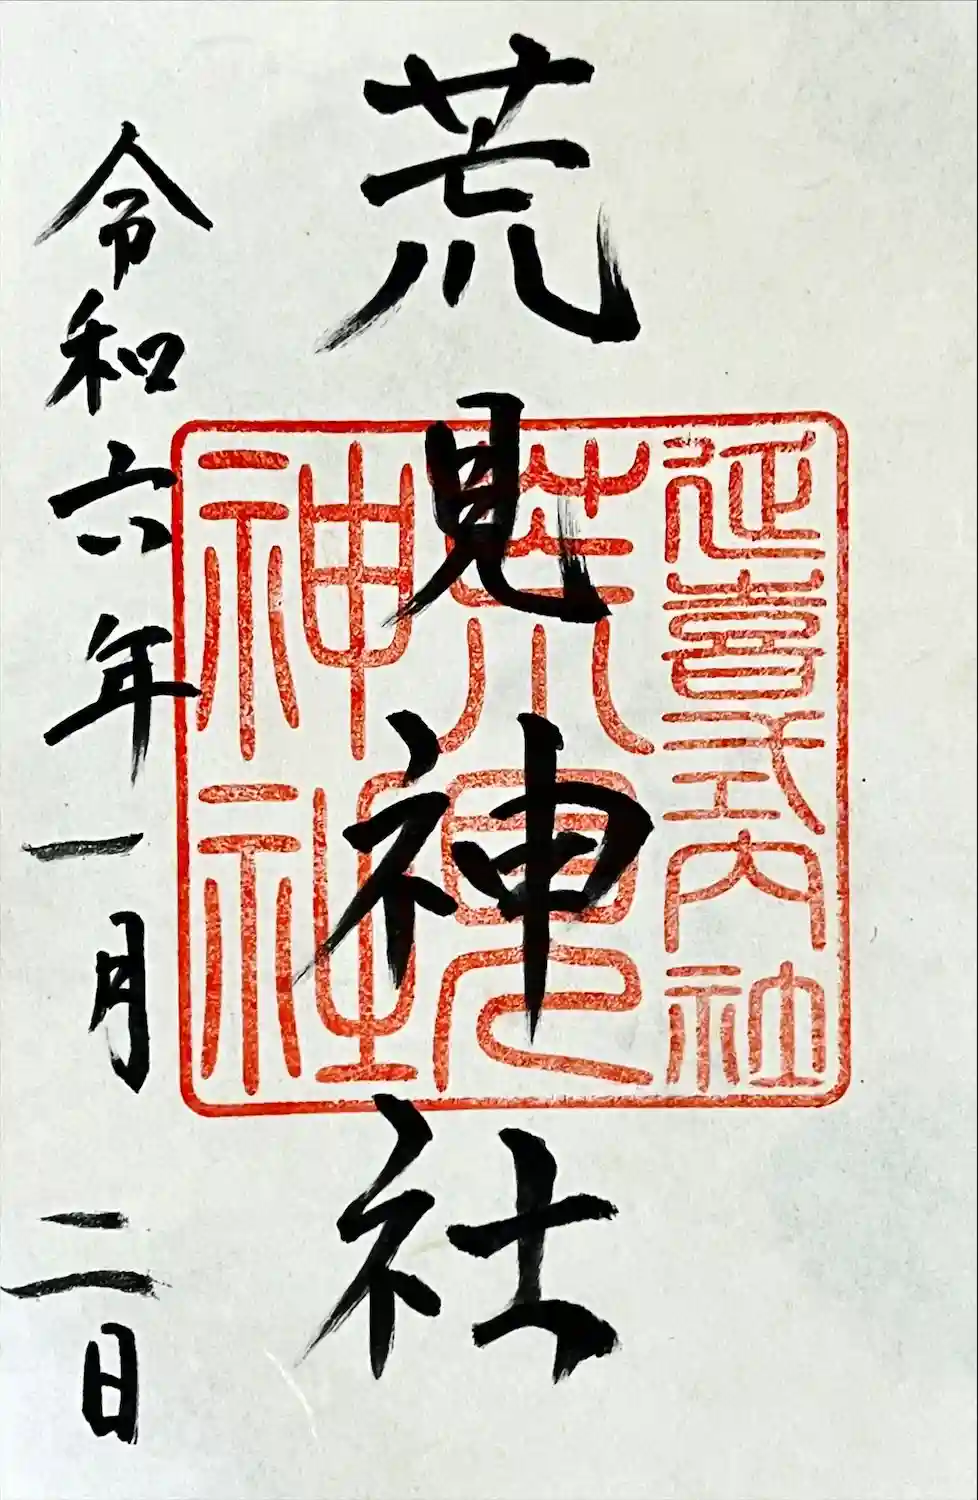 荒見神社
延喜式内社
荒見
神社
令和六年一月二日